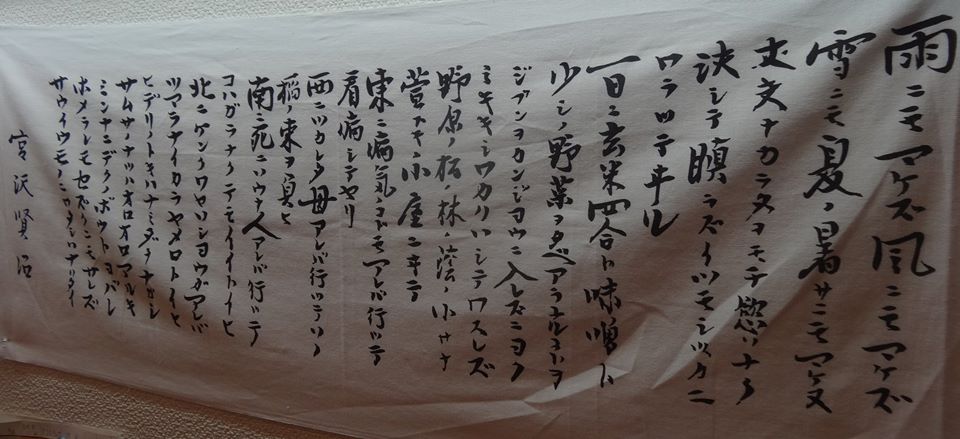 雨ニモマケズ風ニモマケズ
雪ニモ夏ノ暑サニモマケヌ
丈夫ナカラダヲモチ慾ハナク
決シテ瞋ラズイツモシヅカニ
ワラッテヰル
一日ニ玄米四合ト味噌ト
少シノ野菜ヲタベアラユルコトヲ
ジブンヲカンジョウニ入レズニヨク
ミキキシワカリソシテワスレズ
野原ノ松ノ林ノ蔭ノ小サナ
萱ブキノ小屋ニヰテ
東ニ病気ノコドモアレバ行ッテ
看病シテヤリ
西ニツカレタ母アレバ行ッテソノ
稲ノ束ヲ負ヒ
南ニ死ニソウナ人アレバ行ッテ
コハガラナクテモイイトイヒ
北ニケンクヮヤソショウガアレバ
ツマラナイカラヤメロトイヒ
ヒデリノトキハナミダヲナガシ
サムサノナツハオロオロアルキ
ミンナニデクノボウトヨバレ
ホメラレモセズクニモサレズ
サウイウモノニワタシハナリタイ
宮沢賢治